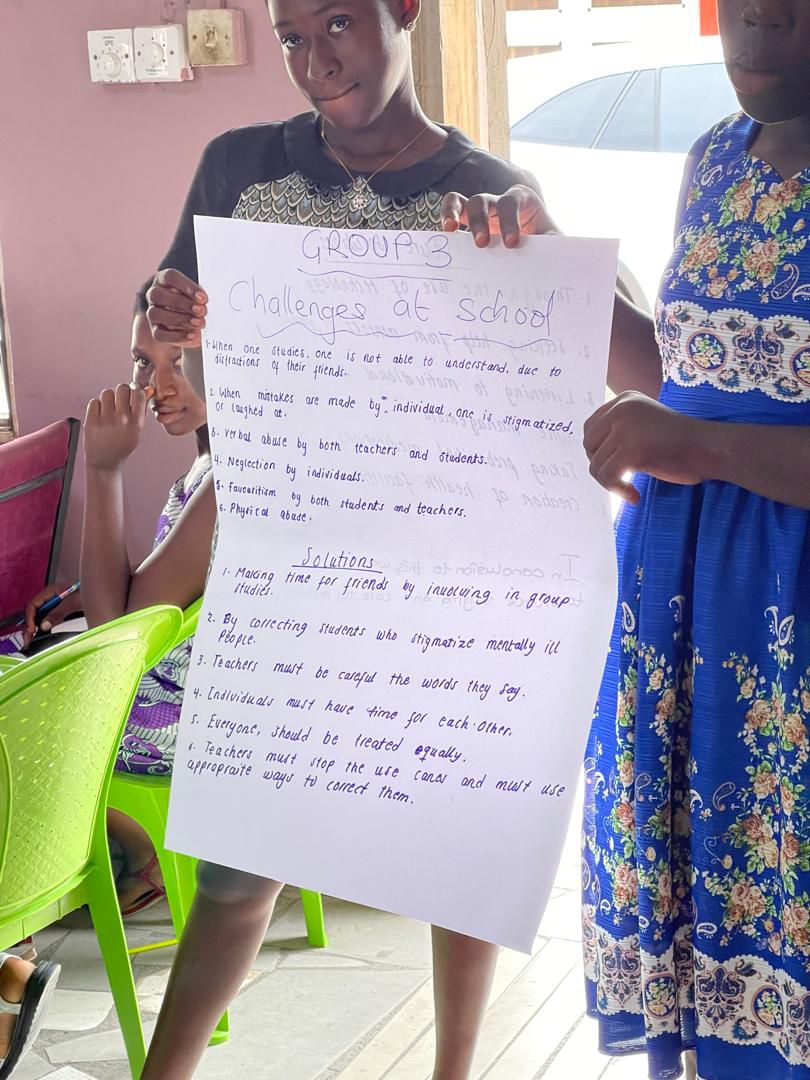 GROUP 3
Challenges at school
1. When one studies, one is not able to understand, due to
distractions of their friends.
2. When mistakes are made by an individual, one is stigmatized,
or laughed at.
3. Verbal abuse by both teachers and students.
4. Neglection by individuals.
5. Favouritism by both students and teachers.
6. Physical abuse.
Solutions
1. Making time for friends by involving in group
studies.
2. By correcting students who stigmatize mentally ill
People.
3. Teachers must be careful the words they say.
4. Individuals must have time for each other.
5. Everyone, should be treated equally.
6. Teachers must stop the use canes and must use
appropraite ways to correct them.